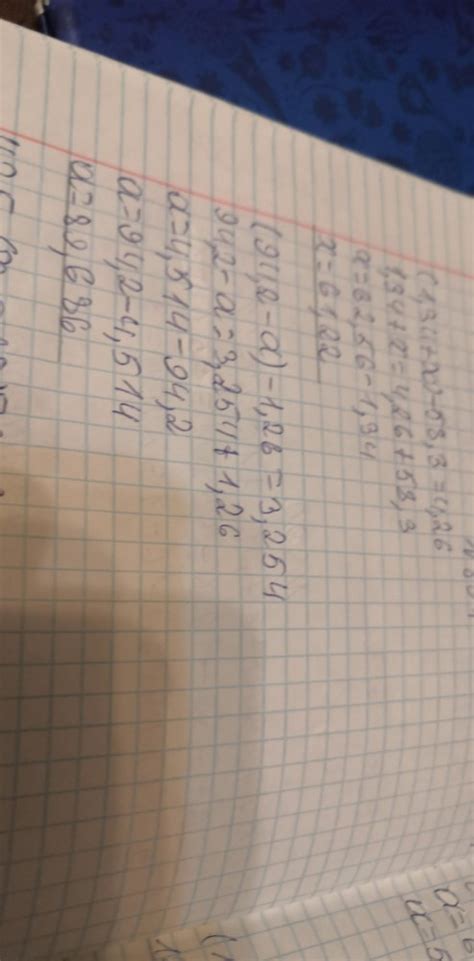 (1,34+x)-58,3=4,26
1,34+x=4,26+58,3
x=62,56-1,34
x=61,22
(94,2-a)-1,26=3,254
94,2-a=3,254+1,26
a=4,514-94,2
a=94,2-4,514
a=89,686